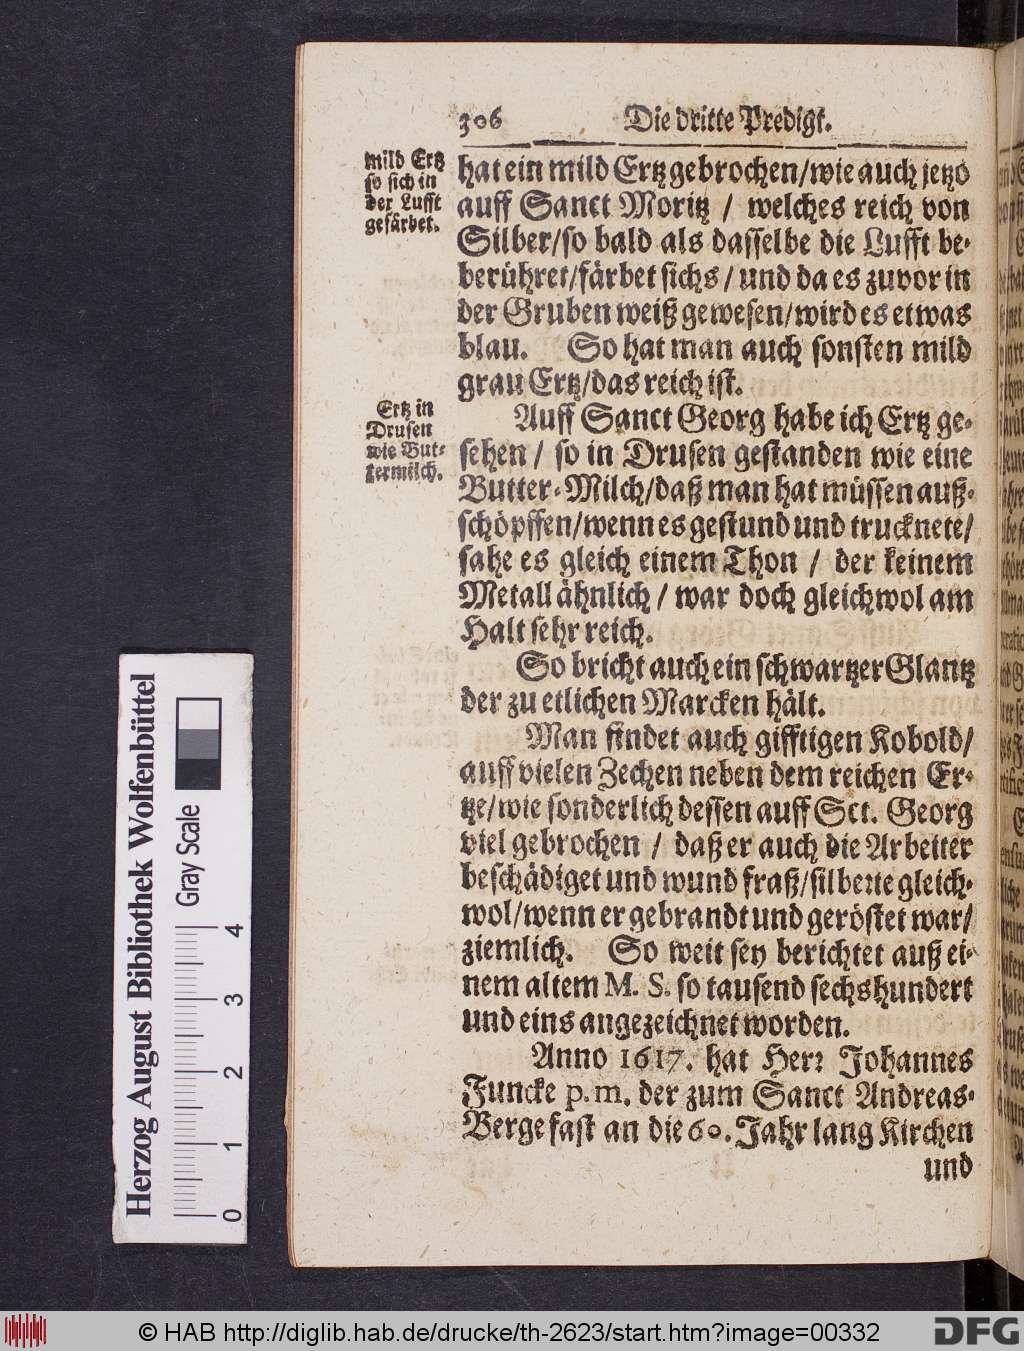 306 Die dritte Predigt.
mild Ertz
so sich in
der Lufft
gefärbet.
hat ein mild Ertz gebrochen/wie auch jetzo
auff Sanct Moritz / welches reich von
Silber/so bald als dasselbe die Lufft be-
berühret/färbet sichs / und da es zuvor in
der Gruben weiß gewesen/wird es etwas
blau. So hat man auch sonsten mild
grau Ertz/das reich ist.
Ertz in
Drusen
wie But-
termilch.
Auff Sanct Georg habe ich Ertz ge-
sehen / so in Drusen gestanden wie eine
Butter-Milch/daß man hat müssen auß-
schöpffen/wenn es gestund und trucknete/
sahe es gleich einem Thon / der keinem
Metall ähnlich / war doch gleichwol am
Halt sehr reich.
So bricht auch ein schwartzer Glantz
der zu etlichen Marcken hält.
Man findet auch gifftigen Kobold/
auff vielen Zechen neben dem reichen Er-
tze/wie sonderlich dessen auff Sct. Georg
viel gebrochen / daß er auch die Arbeiter
beschädiget und wund fraß/silberte gleich-
wol/wenn er gebrandt und geröstet war/
ziemlich. So weit sey berichtet auß ei-
nem altem M. S. so tausend sechshundert
und eins angezeichnet worden.
Anno 1617. hat Herr Johannes
Juncke p. m. der zum Sanct Andreas-
Berge fast an die 60. Jahr lang Kirchen
und
Herzog August Bibliothek Wolfenbüttel
Gray Scale
0 1 2 3 4
© HAB http://diglib.hab.de/drucke/th-2623/start.htm?image=00332
DFG